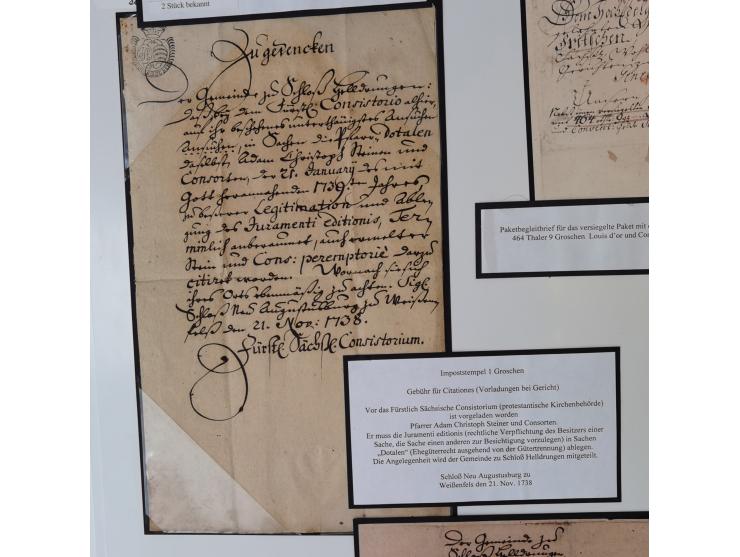 2 Stück bekannt
Zu gedencken
der Gemeinde zu Schloß Helldrungen:
daß bey dem Fürstl: Consistorio alhier,
auf ihr beschehenes unterthänigstes Ansuchen
in Sachen die Pfarr Dotalen
daselbst, Adam Christoph Steinen und
Consorten, der 21. January des mit
Gott herannahenden 1739.sten Jahres,
zu beßerer Legitimation und Able-
gung des Juramenti editionis, Ter-
minlich anberaumet, auch ermelter
Stein und Cons: peremptoriè darzu
citiret worden. Wornach sie sich
ihres Orts ebenmäßig zu achten. Sigl.
Schloß Neu Augustusburg zu Weißen-
felß den 21. Nov: 1738.
Fürstl. Sächß. Consistorium.
Impoststempel 1 Groschen
Gebühr für Citationes (Vorladungen bei Gericht)
Vor das Fürstlich Sächsische Consistorium (protestantische Kirchenbehörde)
ist vorgeladen worden
Pfarrer Adam Christoph Steiner und Consorten.
Er muss die Juramenti editionis (rechtliche Verpflichtung des Besitzers einer
Sache, die Sache einen anderen zur Besichtigung vorzulegen) in Sachen
„Dotalen“ (Ehegüterrecht ausgehend von der Gütertrennung) ablegen.
Die Angelegenheit wird der Gemeinde zu Schloß Helldrungen mitgeteilt.
Schloß Neu Augustusburg zu
Weißenfels den 21. Nov. 1738
Paketbegleitbrief für das versiegelte Paket mit
464 Thaler 9 Groschen Louis d'or und
Der Gemeinde zu
Schloß Helldrungen